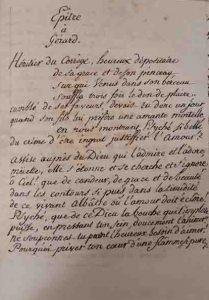 Epître
à
Gérard.
Héritier du Corège, heureux dépositaire
de sa grace et de son pinceau,
Sur qui Vénus dans son berceau
Souffla trois fois le don de plaire,
comblé de ses faveurs, devais-tu donc un jour
quand son fils lui préfère une amante mortelle
en nous montrant Psyché si belle
du crime d'être ingrat justifier l'amour?
assise auprès du Dieu qui l'admire et l'adore
muette, elle s'étonne et se cherche et s'ignore
ô Ciel! que de candeur, de grace et de beauté
dans les contours si purs dans la timidité
de ce vivant albâtre où l'amour doit éclore!
Psyché, que de ce Dieu la bouche
en pressant ton sein, doucement
ne soupçonnes-tu point l'heureux besoin d'aimer?
Pourquoi priver ton cœur d'une flamme si pure